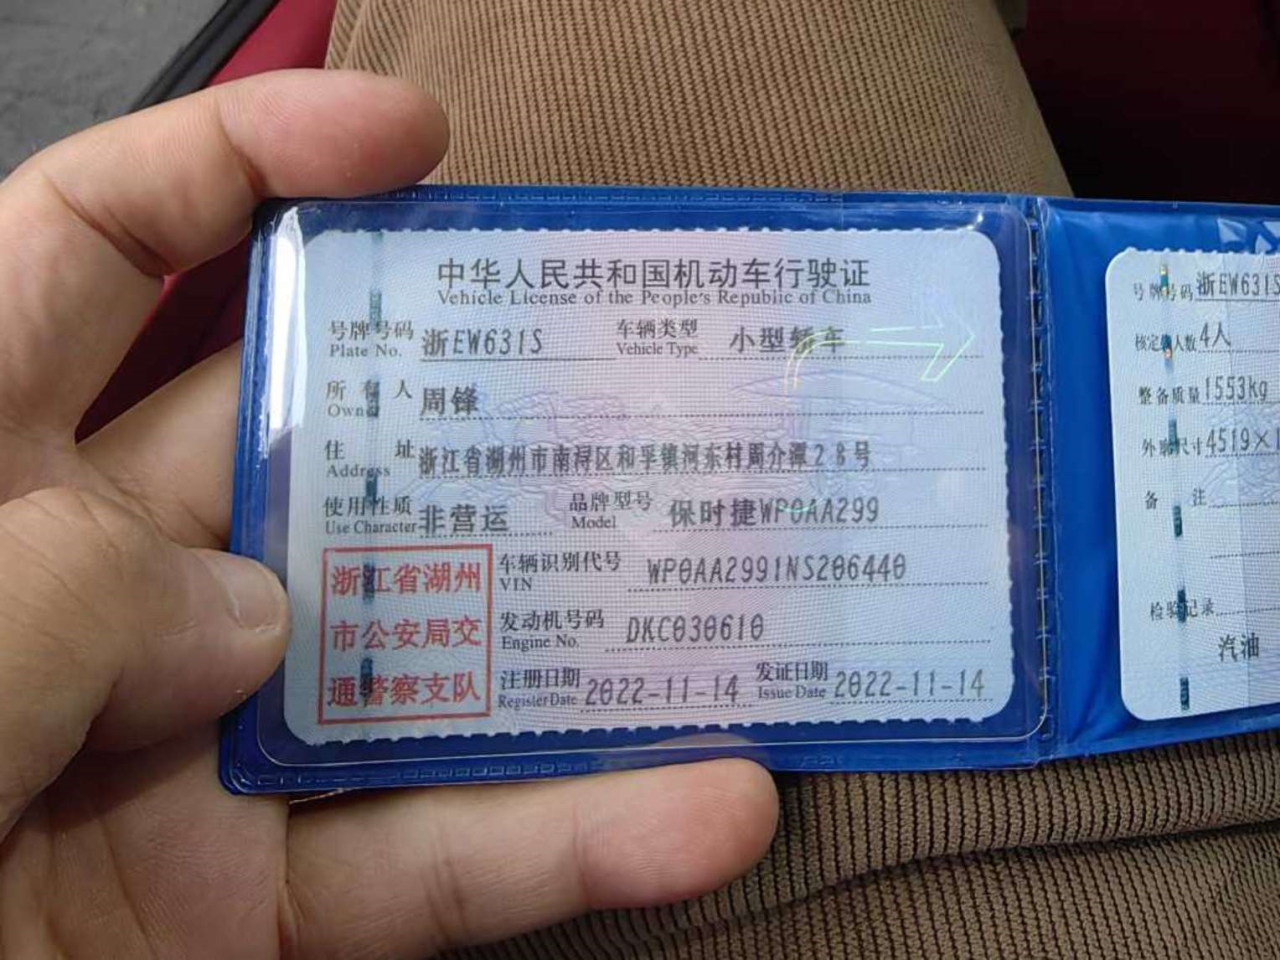 中华人民共和国机动车行驶证
Vehicle License of the People's Republic of China
号牌号码 浙EW631S 车辆类型 小型轿车
Plate No. Vehicle Type
所有人 周锋
Owner
住址 浙江省湖州市南浔区和孚镇河东村周介潭28号
Address
使用性质 非营运 品牌型号 保时捷WP0AA299
Use Character Model
浙江省湖州
市公安局交
通警察支队
车辆识别代号 WP0AA2991NS206440
VIN
发动机号码 DKC030610
Engine No.
注册日期 2022-11-14 发证日期 2022-11-14
Register Date Issue Date
号牌号码 浙EW631S
核定载人数 4人
整备质量 1553kg
外廓尺寸 4519×1
备注
检验记录
汽油